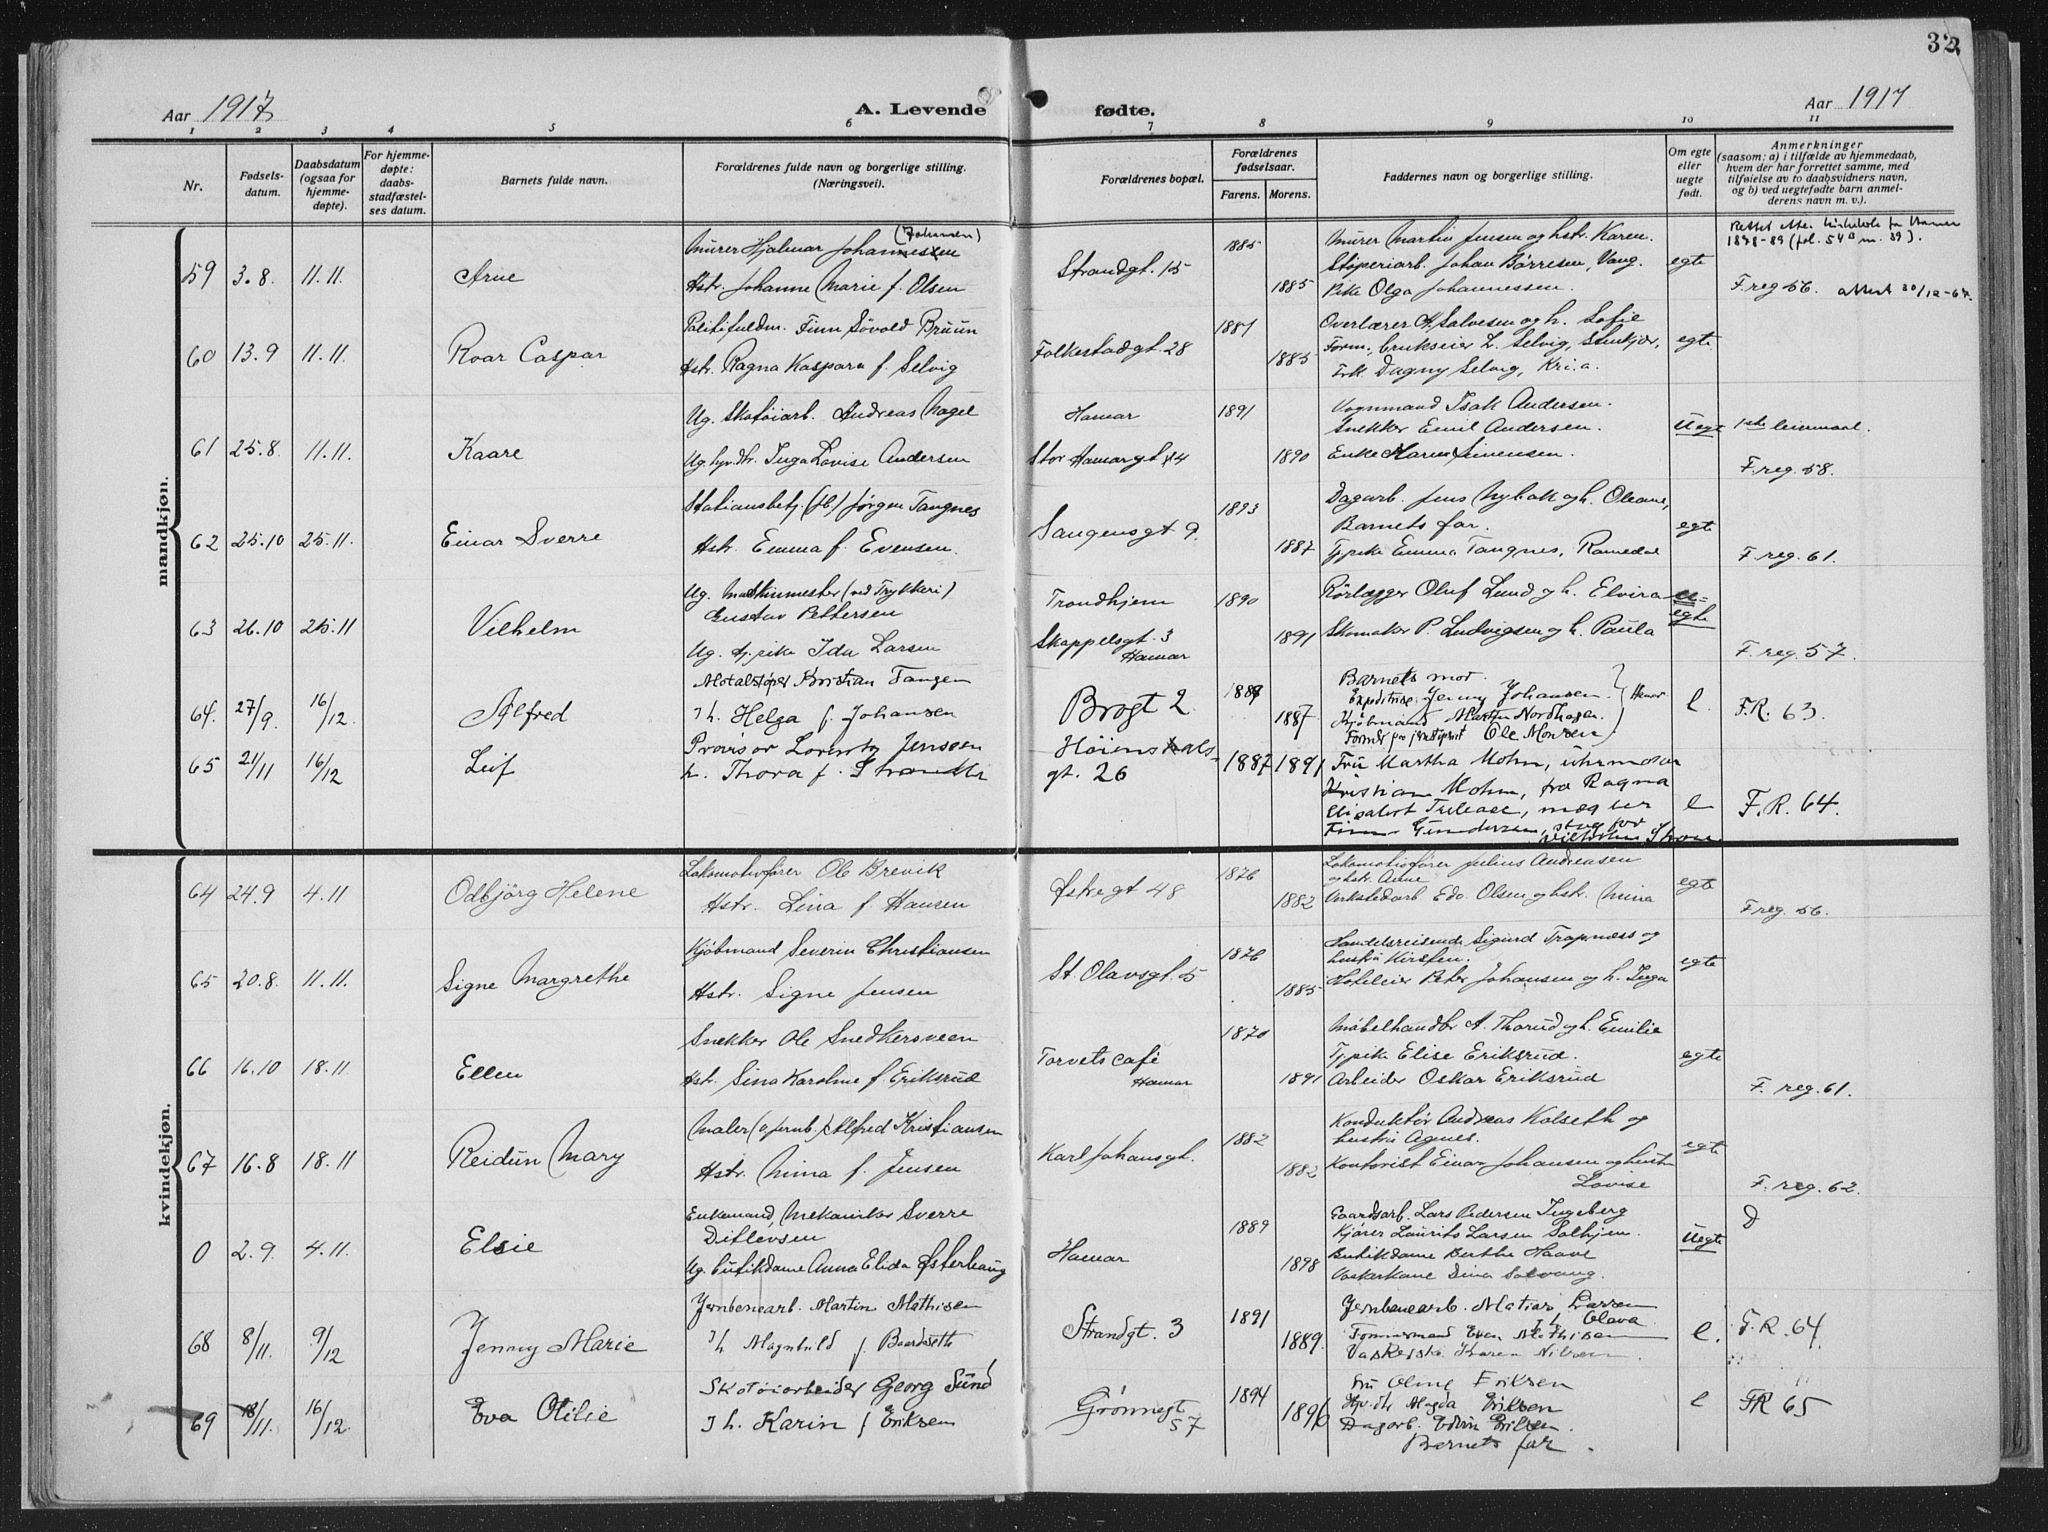 32
Aar 1917
A. Levende
fødte.
Aar 1917
1 2 3 4 5 6 7 8 9 10 11
Nr.
Fødsels-
datum.
Daabsdatum
(ogsaa for
hjemme-
døpte).
For hjemme-
døpte:
daabs-
stadfæstel-
ses datum.
Barnets fulde navn.
Forældrenes fulde navn og borgerlige stilling.
(Næringsvei).
Forældrenes bopæl.
Forældrenes
fødselsaar.
Farens. Morens.
Faddernes navn og borgerlige stilling.
Om egte
eller
uegte
født.
Anmerkninger
(saasom: a) i tilfælde av hjemmedaab,
hvem der har forrettet samme, med
tilføielse av to daabsvidners navn,
og b) ved uegtefødte barn anmel-
derens navn m. v.).
mandkjøn.
59 3.8. 11.11. Arne
(Johansen)
Murer Hjalmar Johannessen
Hstr. Johanne Marie f. Olsen
Strandgt. 15
1885
1885
Murer Martin Jensen og hstr. Karen.
Støperiarb. Johan Børresen, Vang.
Pike Olga Johannessen.
egte
1898-89 (fol. 54B nr. 39).
F. reg. 56. attest 30/12-67.
60 13.9 11.11. Roar Caspar
Politifuldm. Finn Søvold Bruun
Hstr. Ragna Kaspara f. Selvig
Folkestadgt. 28
1881
1885
Overlærer H. Salvesen og h. Sofie
Form., brukseier L. Selvig, Stenkjær,
Frk. Dagny Selvig, Kr.i.a.
egte
61 25.8. 11.11. Kaare
Ug. Skotøiarb. Andreas Nagel
Ug. hjv. dtr. Inga Lovise Andersen
Hamar
Stor Hamargt. 14
1891
1890
Vognmand Isak Andersen.
Snekker Emil Andersen.
Enke Maren Simensen.
Uegte
1ste leiermaal.
F. reg. 58.
62 25.10 25.11. Einar Sverre
Stationsbetj. (Jb.) Jørgen Tangnes
Hstr. Emma f. Evensen.
Vangensgt 9.
1893
1887
Dagarb. Jens Nybak og h. Oleane,
Barnets far.
Tj.pike Emma Tangnes, Romedal
egte
F. reg. 61.
63 26.10 25.11 Vilhelm
Ug. Maskinmester (ved Trykkeri)
Gustav Pettersen
Ug. tj. pike Ida Larsen
Trondhjem
Skappelsgt. 3
Hamar
1890
1891
Rørlægger Oluf Lund og h. Elvira
Skomaker P. Ludvigsen og h. Paula
u-
egte
F. reg. 57.
64. 27/9. 16/12 Alfred
Metalstøper Kristian Tangen
I h. Helga f. Johansen
Brogt 2
1887
1887.
Barnets mor.
Expeditrise Jenny Johansen.
Kjøbmand Martin Nordhagen.
Ole Monsen
Hamar
e.
F.R. 63.
65 21/11 16/12 Leif
Provisor Lorentz Jenssen
h. Thora f. Strandli
Høiensals-
gt. 26
1887 1891
Fru Martha Mohn, uhrmaker
Kristian Mohn, fra Ragna
Finn Gundersen, stud.
e
F.R. 64.
kvindekjøn.
64 24.9 4.11 Odbjørg Helene
Lokomotivfører Ole Brevik
Hstr. Lina f. Hansen
Østregt 48
1876
1882
Lokomotivfører Julius Andreasen
og hstr. Anne
Verkstedarb Edv. Olsen og hstr. Mina
egte
F reg. 56.
65 20.8. 11.11. Signe Margrethe
Kjøbmand Severin Christiansen
Hstr. Signe Jensen
St. Olavsgt. 5
1876
1885
Handelsreisende Sigurd Trapness og
hustru Kirsten.
Hoteleier Peter Johansen og h. Inga
egte
66 16.10 18.11 Ellen
Snekker Ole Snedkersveen
Hstr. Lina Karoline f. Eriksrud
Torvets café
Hamar
1870
1891
Møbelhandler A. Thorud og h. Emilie
Tj.pike Elise Eriksrud.
Arbeider Oskar Eriksrud
egte
F. reg. 61.
67 16.8 18.11 Reidun Mary
Maler (v. jernb.) Alfred Kristiansen
Hstr. Mina f. Jensen
Karl Johansgt.
1882
1882
Konduktør Andreas Kolseth og
hustru Agnes.
Kontorist Einar Johansen og hustru
Lovise
egte
F. reg. 62.
0 2.9. 4.11. Elsie
Enkemand, Mekaniker Sverre
Ditlevsen
Ug. butikdame Anna Elida Østerhaug
Hamar
1889
1898
Gaardsarb. Lars Pedersen Ingeberg
Kjører Laurits Larsen Solhjem.
Butikdame Berthe Haave
Vaskerkone Dina Solvang.
Uegte
D
68 8/11. 9/12 Jenny Marie
Jernbanearb. Martin Mathisen
I h. Magnhild f. Baardseth
Strandgt. 3
1891
1889.
Jernbanearb. Matias Larsen
I h. Olava
Tømmermand Even Mathisen
Vaskerske Karen Nilsen.
e.
F.R. 64.
69 18/11. 16/12. Eva Otilie
Skotøiarbeider Georg Sund
I h. Karin f Eriksen
Grønnegt
57
1894
1896
Fru Oline Eriksen
Hjv. dtr Magda Eriksen
Dagarb. Edvin Eriksen.
Barnets far.
e
FR 65